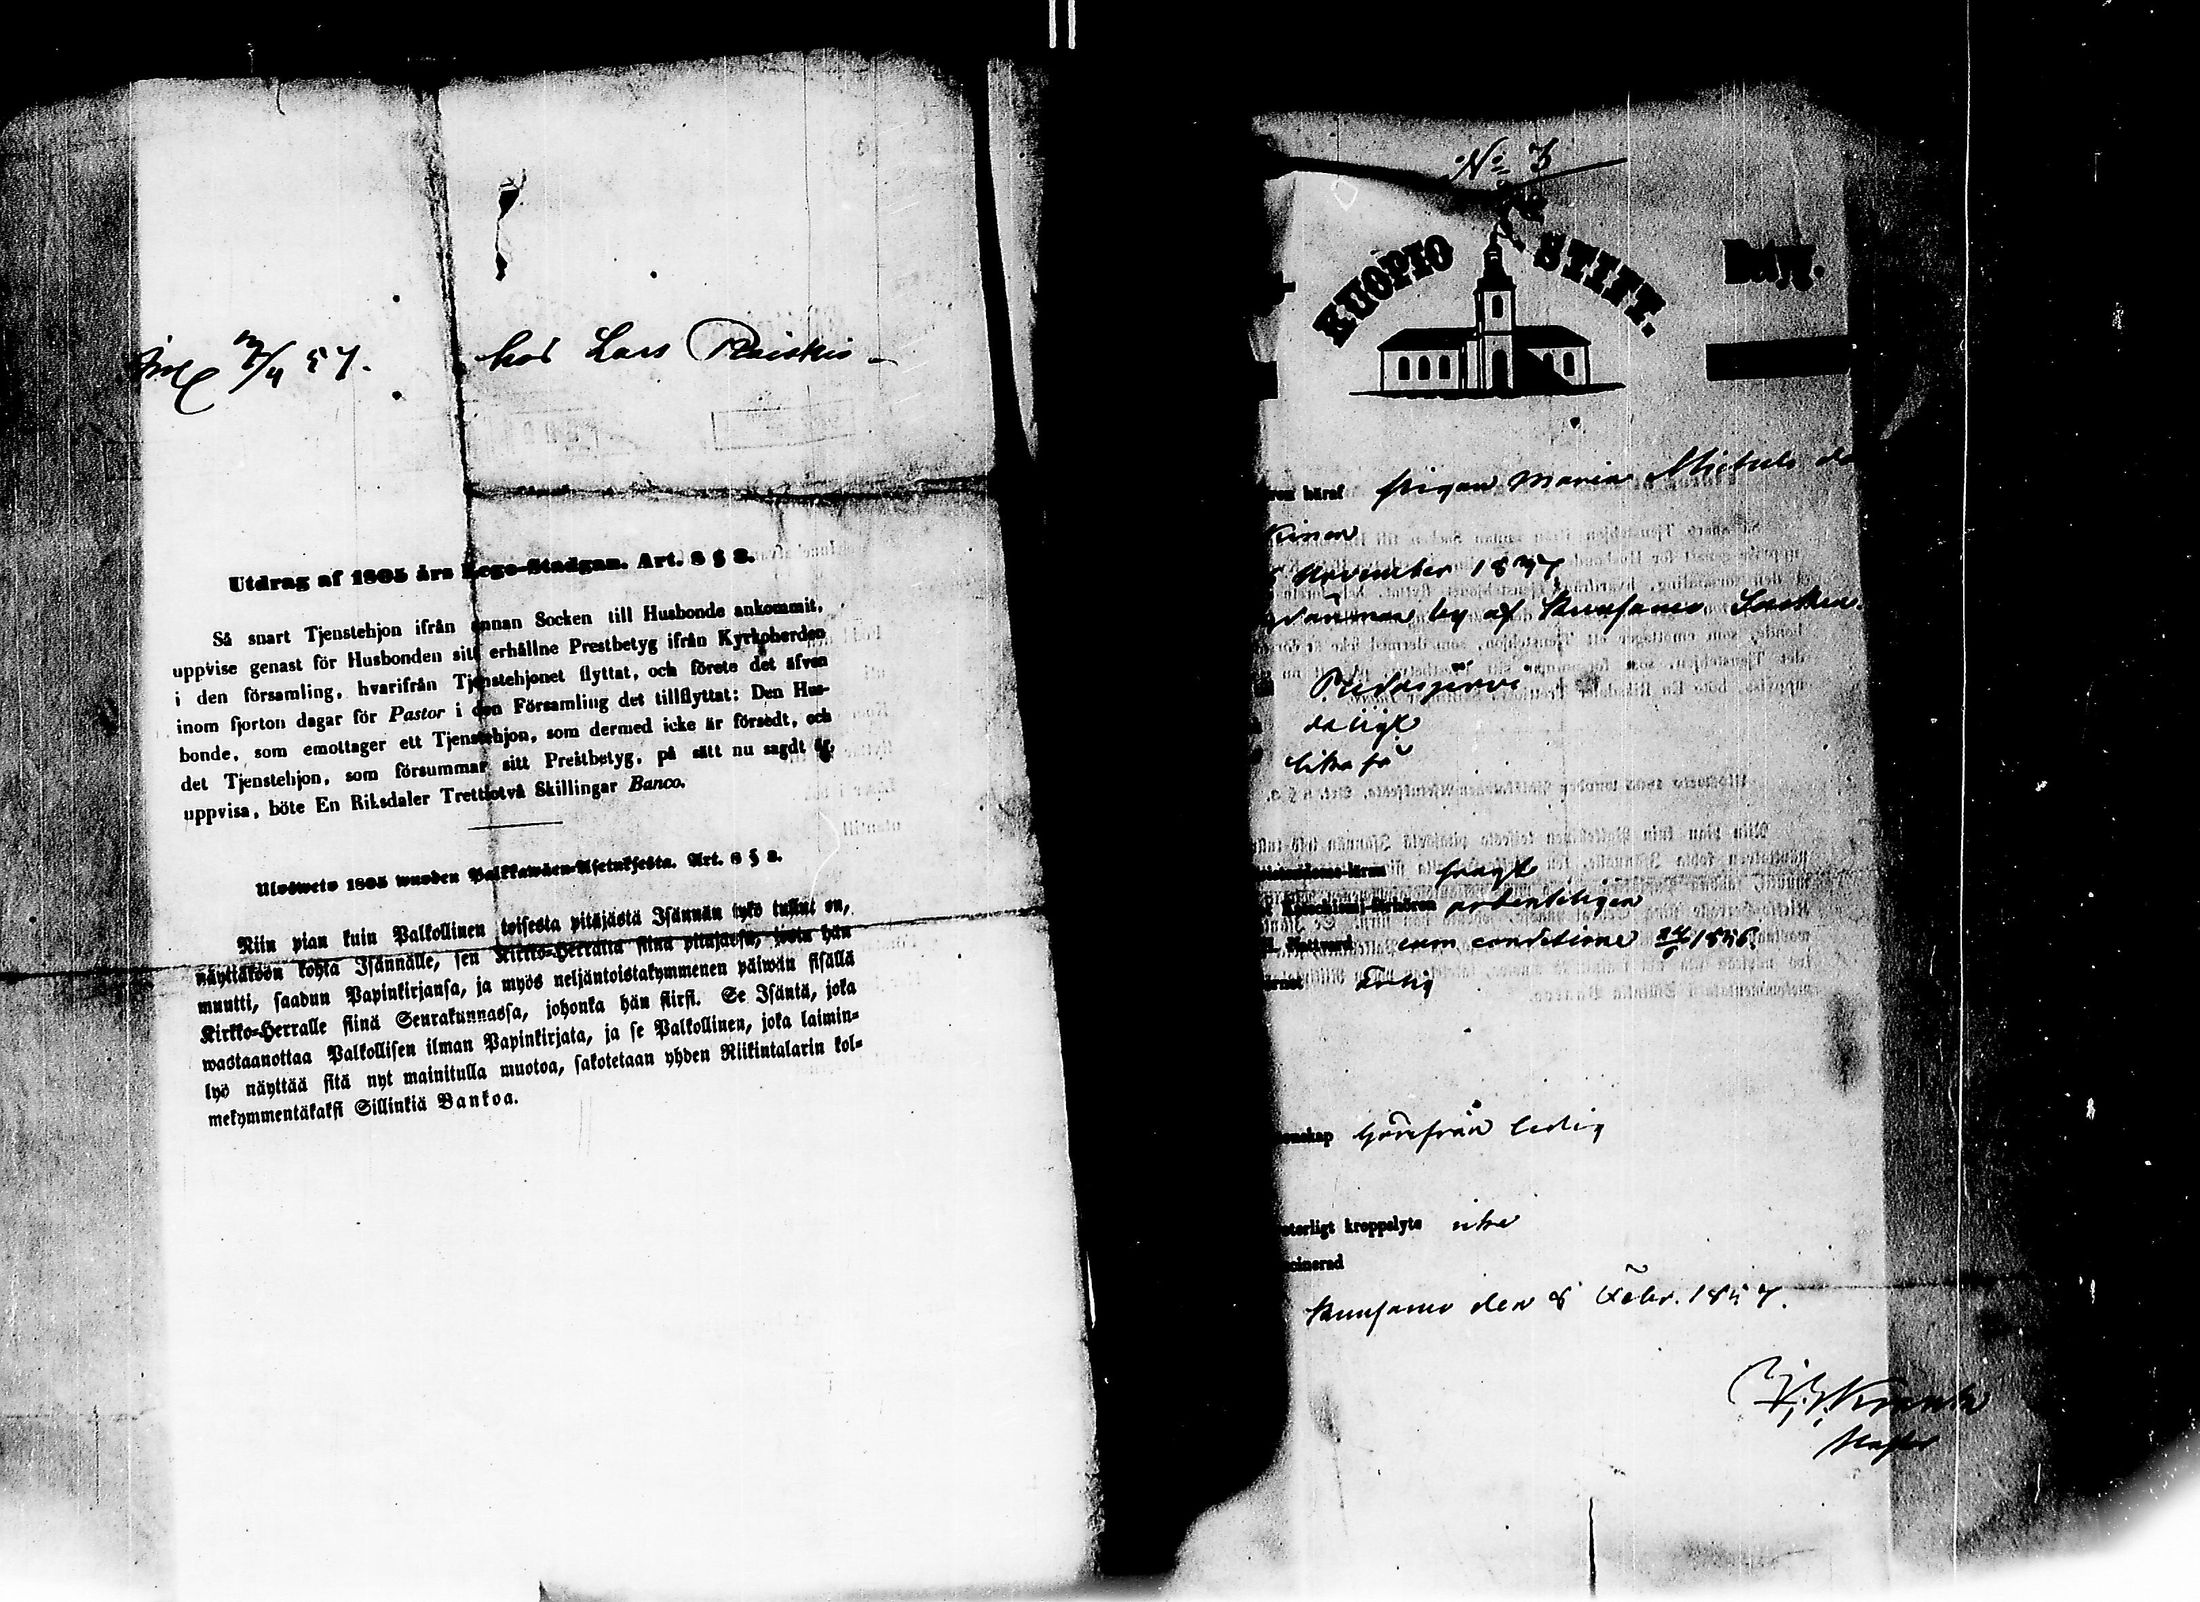 hos Lars Raiskio
Utdrag af 1805 års Lego-Stadgan. Art. 8 § 2.
Så snart Tjenstehjon ifrån annan Socken till Husbonde ankommit,
uppvise genast för Husbonden sitt erhållne Prestbetyg ifrån Kyrkoherden
i den församling, hvarifrån Tjenstehjonet flyttat, och förete det äfven
inom fjorton dagar för Pastor i den Församling det tillflyttat: Den Hus-
bonde, som emottager ett Tjenstehjon, som dermed icke är försedt, och
det Tjenstehjon, som försummar sitt Prestbetyg, på sätt nu sagdt är,
uppvisa, böte En Riksdaler Trettiotvå Skillingar Banco.
Ulosweto 1805 wuoden Palkkawäen-Asetuksesta. Art. 8 § 2.
Niin pian kuin Palkollinen toisesta pitäjästä Isännän tykö tullut on,
näyttäköön kohta Isännälle, sen Kirkko-Herralta siinä pitäjässä, josta hän
muutti, saadun Papinkirjansa, ja myös neljäntoistakymmenen päiwän sisällä
Kirkko-Herralle siinä Seurakunnassa, johonka hän siirsi. Se Isäntä, joka
wastaanottaa Palkollisen ilman Papinkirjata, ja se Palkollinen, joka laimin-
lyö näyttää sitä nyt mainitulla muotoa, sakotetaan yhden Riikintalarin kol-
mekymmentäkaksi Sillinkiä Bankoa.
N:o 3
KUOPIO STIFT.
Betyg.
häraf pigan Maria Michels do
kinen
November 1837
by af Kuusamo Socken
Pudasjärvi
dåligt
lika så
svagt
ordentligen
Nattvard cum conditione 1856.
ärlig
härifrån ledig
kroppslyte icke
Kuusamo den 8 Febr. 1857.